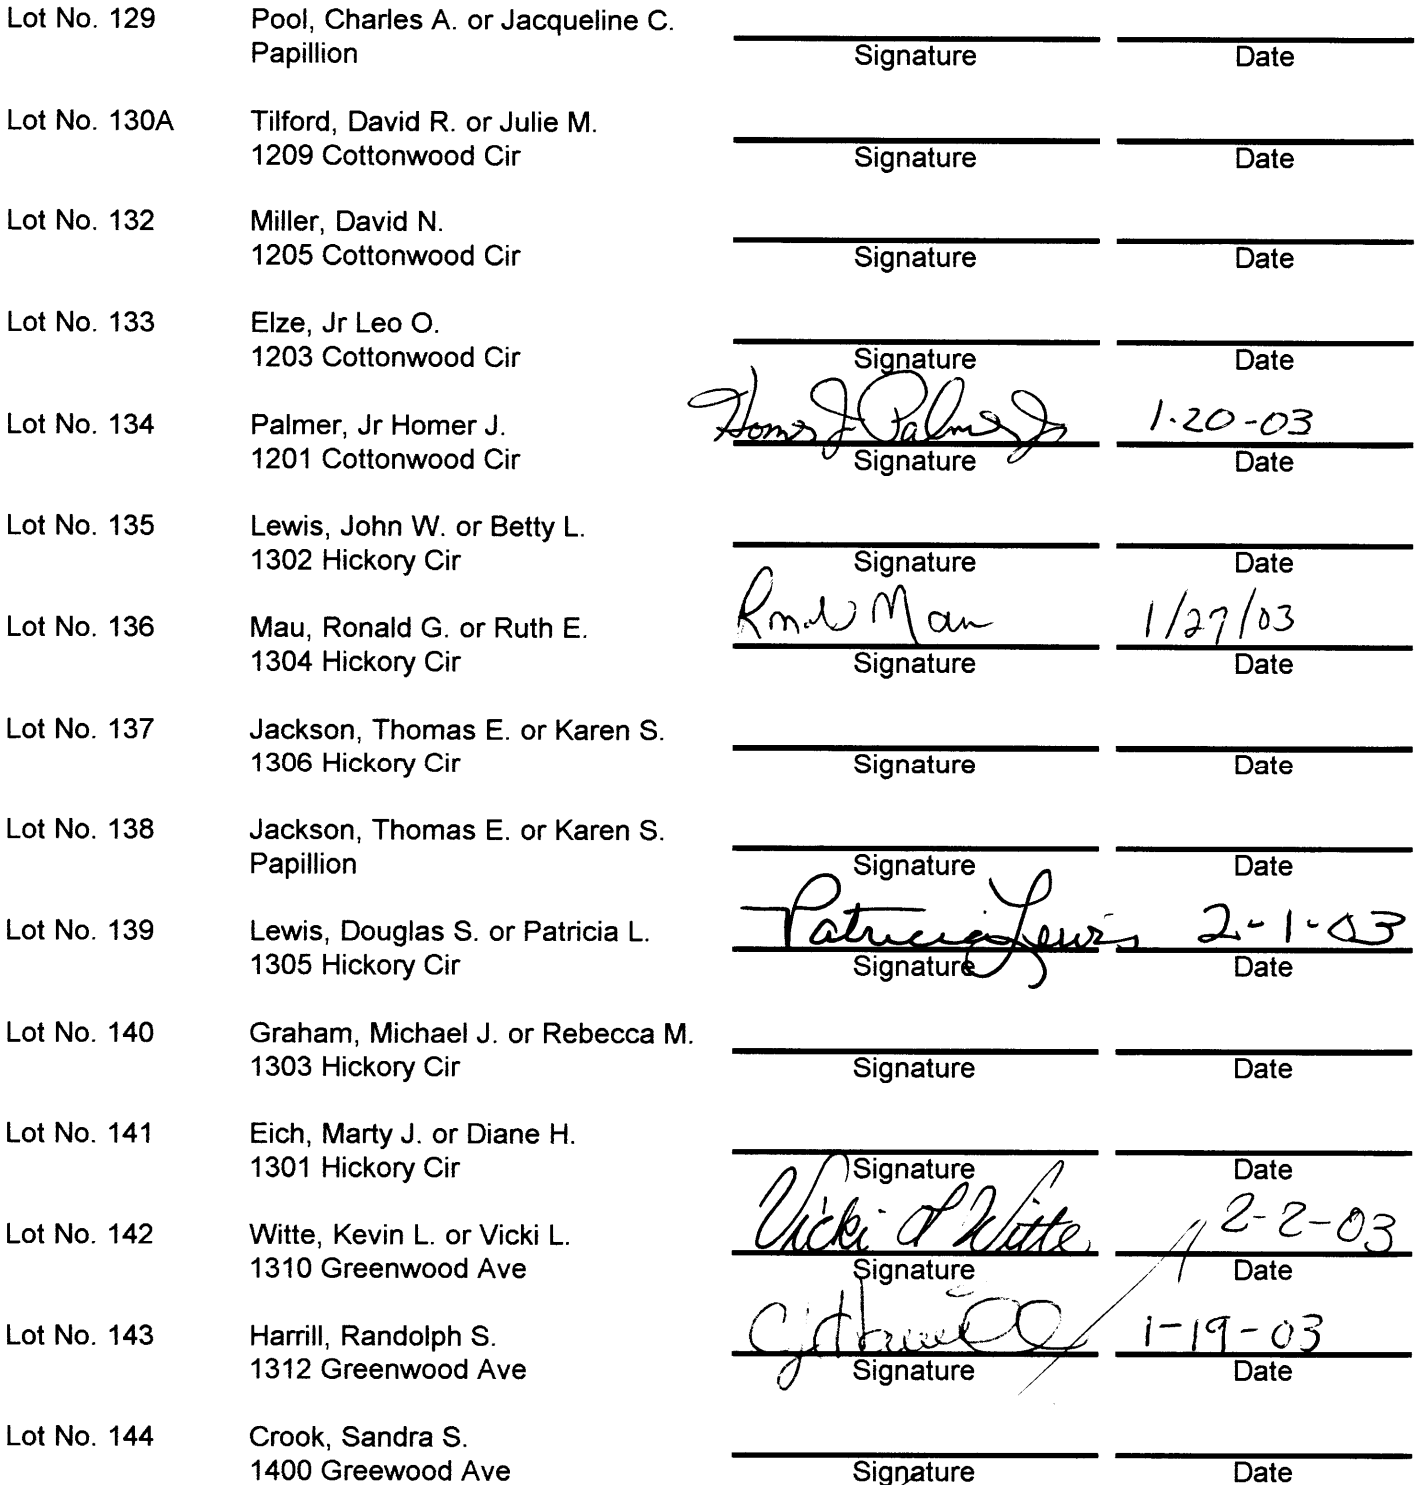 Lot No. 129 Pool, Charles A. or Jacqueline C.
Papillion
Signature Date
Lot No. 130A Tilford, David R. or Julie M.
1209 Cottonwood Cir Signature Date
Lot No. 132 Miller, David N.
1205 Cottonwood Cir Signature Date
Lot No. 133 Elze, Jr Leo O.
1203 Cottonwood Cir Signature Date
Homer J Palmer Jr 1-20-03
Lot No. 134 Palmer, Jr Homer J.
1201 Cottonwood Cir Signature Date
Lot No. 135 Lewis, John W. or Betty L.
1302 Hickory Cir Signature Date
Mau 1/27/03
Lot No. 136 Mau, Ronald G. or Ruth E.
1304 Hickory Cir Signature Date
Lot No. 137 Jackson, Thomas E. or Karen S.
1306 Hickory Cir Signature Date
Lot No. 138 Jackson, Thomas E. or Karen S.
Papillion Signature Date
Patricia Lewis 2-1-03
Lot No. 139 Lewis, Douglas S. or Patricia L.
1305 Hickory Cir Signature Date
Lot No. 140 Graham, Michael J. or Rebecca M.
1303 Hickory Cir Signature Date
Lot No. 141 Eich, Marty J. or Diane H.
1301 Hickory Cir Signature Date
Vicki L Witte 2-2-03
Lot No. 142 Witte, Kevin L. or Vicki L.
1310 Greenwood Ave Signature Date
Harrill 1-19-03
Lot No. 143 Harrill, Randolph S.
1312 Greenwood Ave Signature Date
Lot No. 144 Crook, Sandra S.
1400 Greewood Ave Signature Date